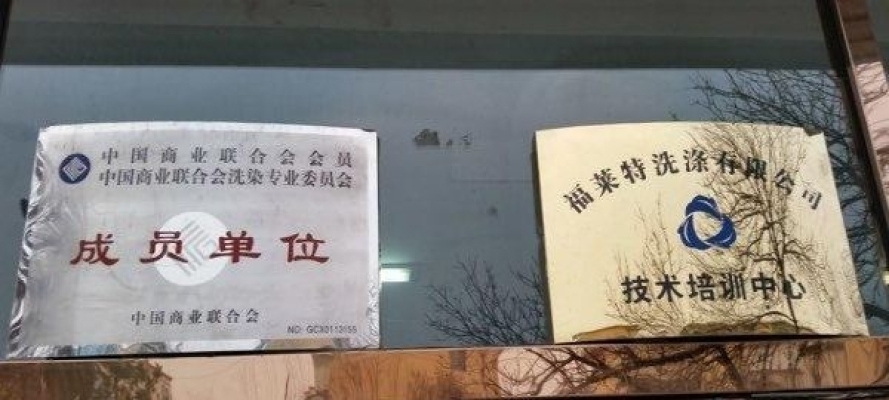 中国商业联合会会员
中国商业联合会洗染专业委员会
成员单位
中国商业联合会
NO: GCX0113155
福莱特洗涤有限公司
技术培训中心